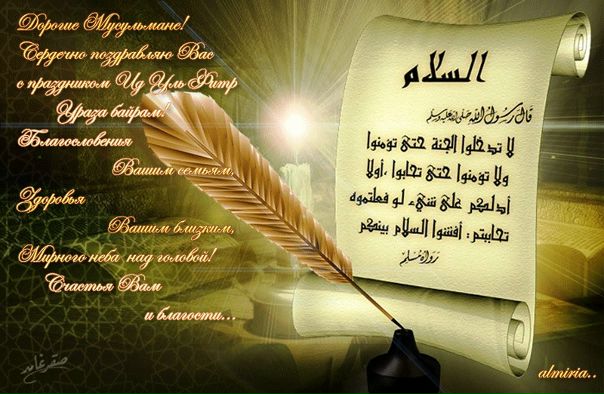 Дорогие Мусульмане!
Сердечно поздравляю Вас
с праздником Ид Уль Фитр
Ураза байрам!
Благословения
Вашим семьям,
Здоровья
Вашим близким,
Мирного неба над головой!
Счастья Вам
и благости...
السلام
قال رسول الله صلى الله عليه وسلم
لا تدخلوا الجنة حتى تؤمنوا
ولا تؤمنوا حتى تحابوا ،أولا
أدلكم على شيء لو فعلتموه
تحاببتم : أفشوا السلام بينكم
رواه مسلم
almiria..